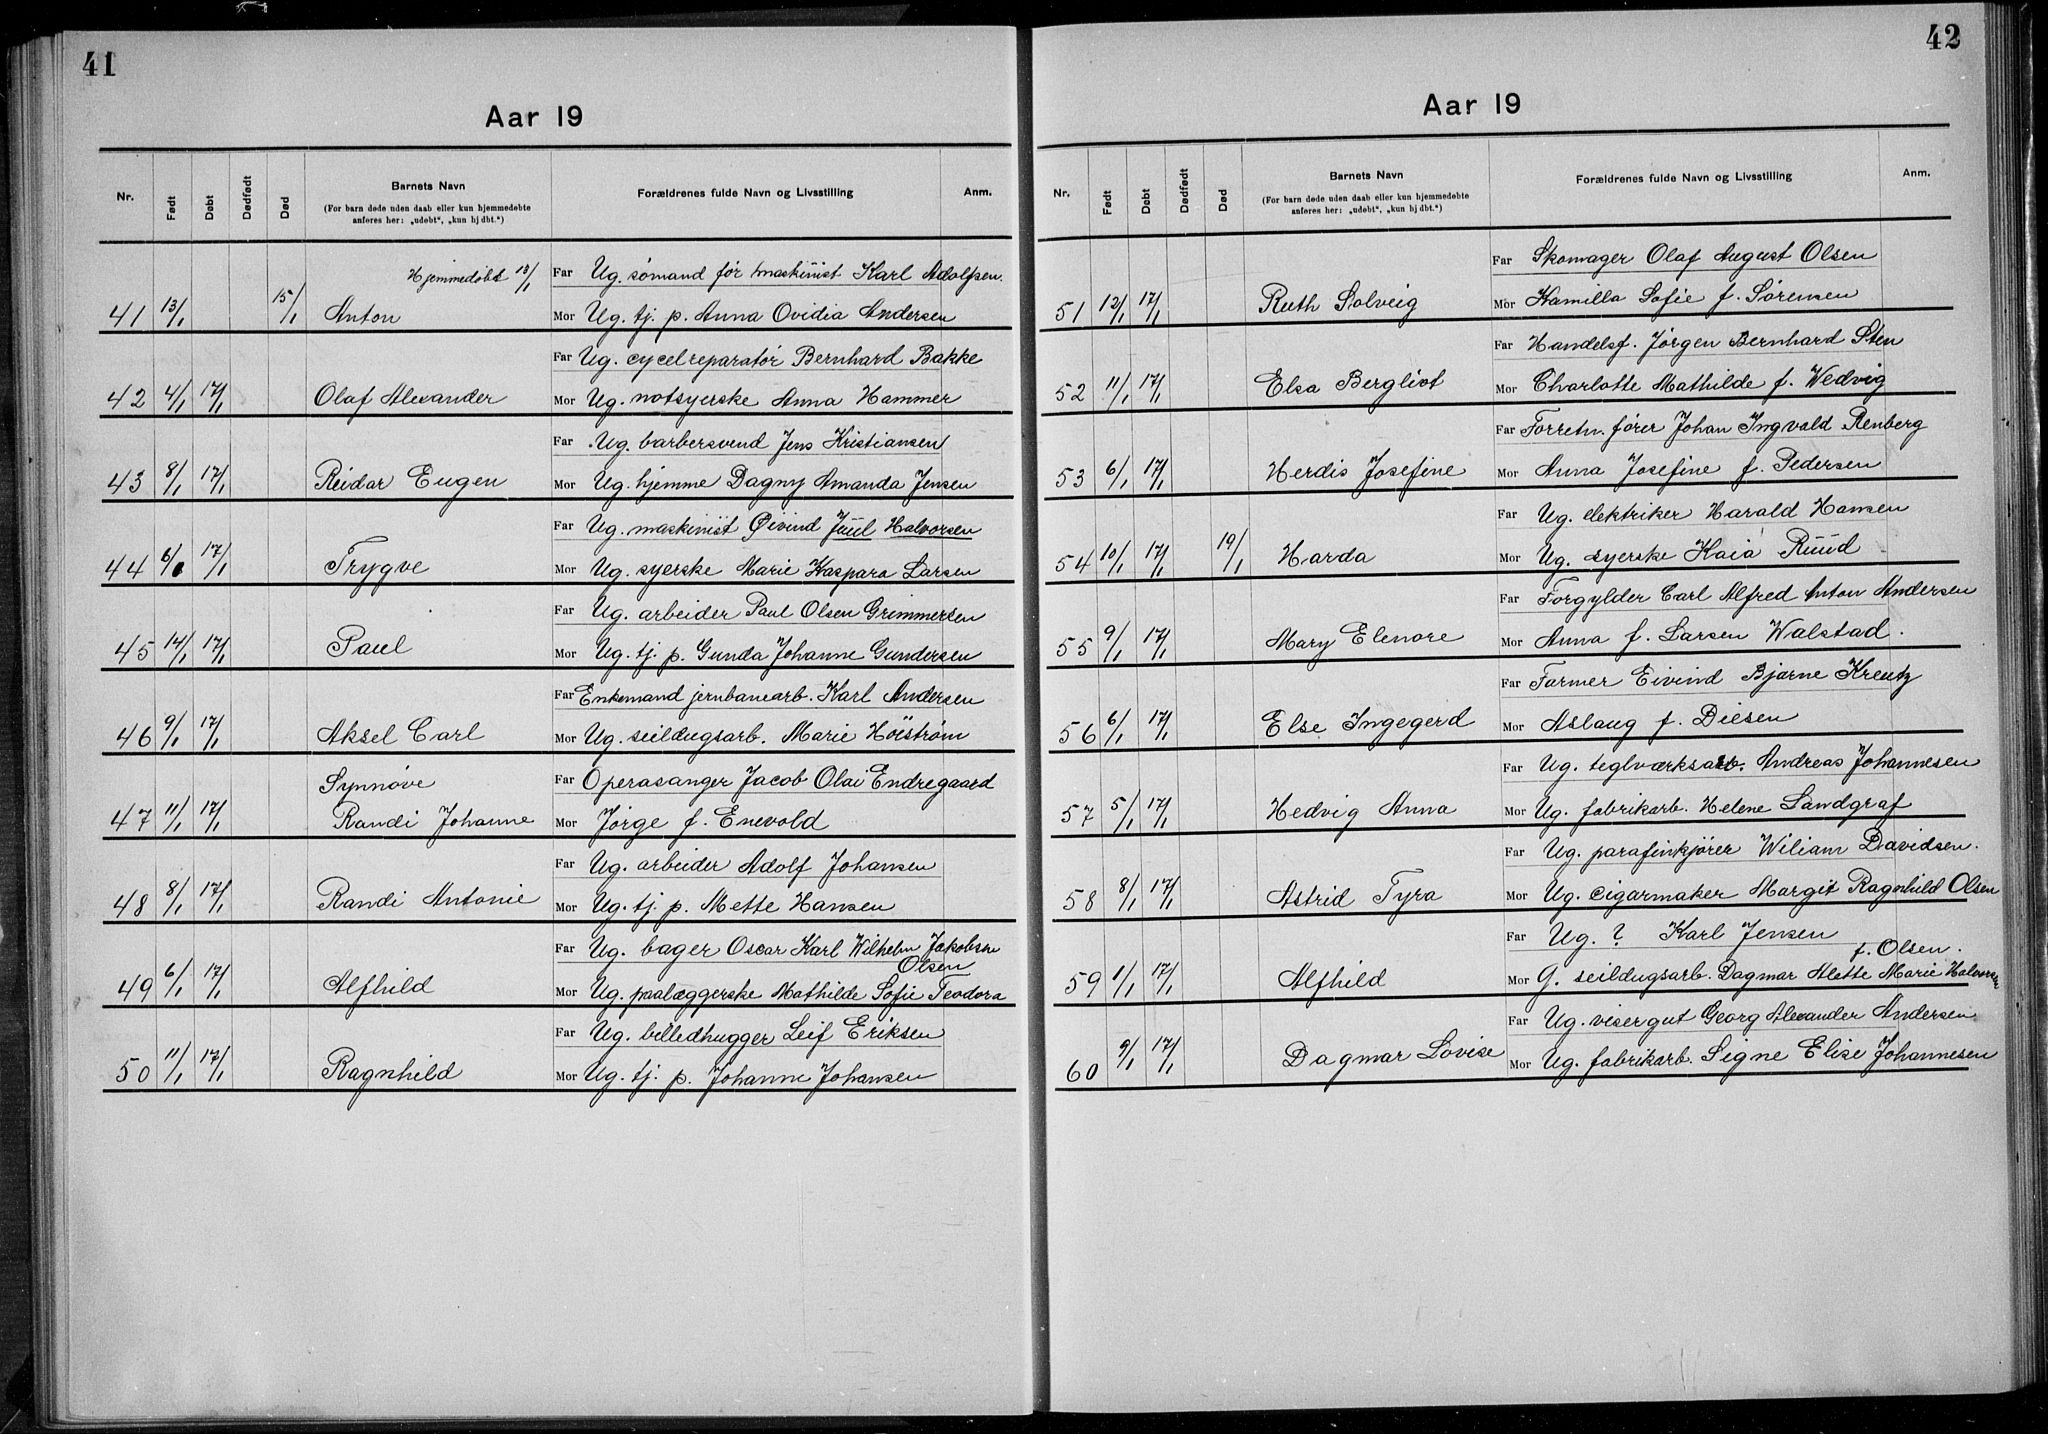 41
Aar 19
Nr.
Født
Døbt
Dødfødt
Død
Barnets Navn
(For barn døde uden daab eller kun hjemmedøbte
anføres her: „udøbt“, „kun hj dbt.“)
Forældrenes fulde Navn og Livsstilling
Anm.
Hjemmedøbt 13/1
Far Ug. sømand før maskinist Karl Adolfsen.
41 13/1 15/1 Anton Mor Ug. tj. p. Anna Ovidia Andersen
Far Ug. cycelreparatør Bernhard Bakke
42 4/1 17/1 Olaf Alexander Mor Ug. notsyerske Anna Hammer
Far Ug. barbersvend Jens Kristiansen
43 8/1 17/1 Reidar Eugen Mor Ug. hjemme Dagny Amanda Jensen
Far Ug. maskinist Øivind Juul Halvorsen
44 6/1 17/1 Trygve Mor Ug. syerske Marie Kaspara Larsen
Far Ug. arbeider Paul Olsen Grimmersen
45 14/1 17/1 Paul Mor Ug. tj. p. Gunda Johanne Gundersen
Far Enkemand jernbanearb. Karl Andersen
46 9/1 17/1 Aksel Carl Mor Ug. seildugsarb. Marie Höiström
Synnøve Far Operasanger Jacob Olai Endregaard
47 11/1 17/1 Randi Johanne Mor Jørge f. Enevold
Far Ug. arbeider Adolf Johansen
48 8/1 17/1 Randi Antonie Mor Ug. tj. p. Mette Hansen
Far Ug. bager Oscar Karl Wilhelm Jakobsen
Olsen
49 6/1 17/1 Alfhild Mor Ug. paalæggerske Mathilde Sofie Teodora
Far Ug. billedhugger Leif Eriksen
50 11/1 17/1 Ragnhild Mor Ug. tj. p. Johanne Johansen
42
Aar 19
Nr.
Født
Døbt
Dødfødt
Død
Barnets Navn
(For barn døde uden daab eller kun hjemmedøbte
anføres her: „udøbt“, „kun hj dbt.“)
Forældrenes fulde Navn og Livsstilling
Anm.
Far Skomager Olaf August Olsen
51 12/1 17/1 Ruth Solveig Mor Kamilla Sofie f. Sørensen
Far Handelsf. Jørgen Bernhard Sten
52 11/1 17/1 Elsa Bergliot Mor Charlotte Mathilde f. Wedvig
Far Forretn. fører Johan Ingvald Renberg
53 6/1 17/1 Herdis Josefine Mor Anna Josefine f. Pedersen
Far Ug. elektriker Harald Hansen
54 10/1 17/1 19/1 Harda Mor Ug. syerske Kaia Ruud
Far Forgylder Carl Alfred Anton Andersen
55 9/1 17/1 Mary Elenore Mor Anna f. Larsen Walstad.
Far Farmer Eivind Bjarne Kreutz
56 6/1 17/1 Else Ingegerd Mor Aslaug f. Diesen
Far Ug. teglværksarb. Andreas Johannesen
57 5/1 17/1 Hedvig Anna Mor Ug. fabrikarb. Helene Landgraf
Far Ug. parafinkjører Wiliam Davidsen.
58 8/1 17/1 Astrid Tyra Mor Ug. cigarmaker Margit Ragnhild Olsen
Far Ug. ? Karl Jensen
f. Olsen.
59 1/1 17/1 Alfhild Mor G. seildugsarb. Dagmar Alette Marie Halvorsen
Far Ug. visergut Georg Alexander Andersen
60 9/1 17/1 Dagmar Lovise Mor Ug. fabrikarb. Signe Elise Johannesen